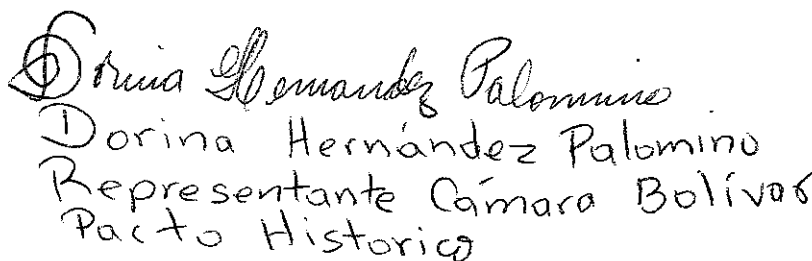 Dorina Hernandez Palomino
Dorina Hernández Palomino
Representante Cámara Bolívar
Pacto Historico